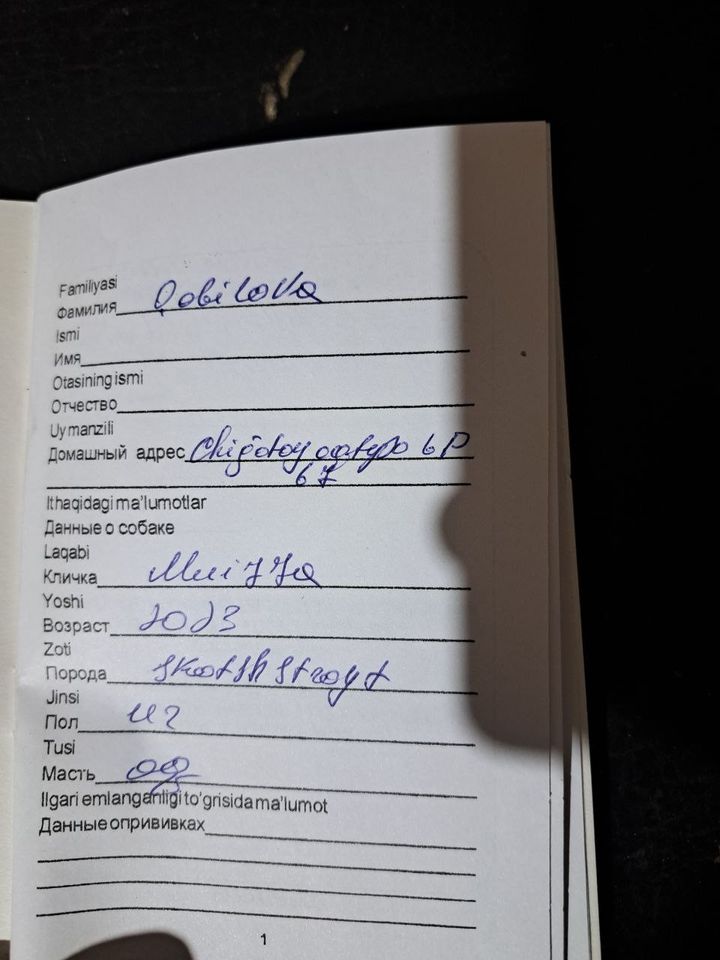 Familiyasi
Фамилия Qobilova
Ismi
Имя
Otasining ismi
Отчество
Uy manzili
Домашный адрес Chig'atoy 6
67
It haqidagi ma'lumotlar
Данные о собаке
Laqabi
Кличка
Yoshi
Возраст 2023
Zoti
Порода skotsh strayt
Jinsi
Пол
Tusi
Масть oq
Ilgari emlanganligi to'grisida ma'lumot
Данные о прививках
1